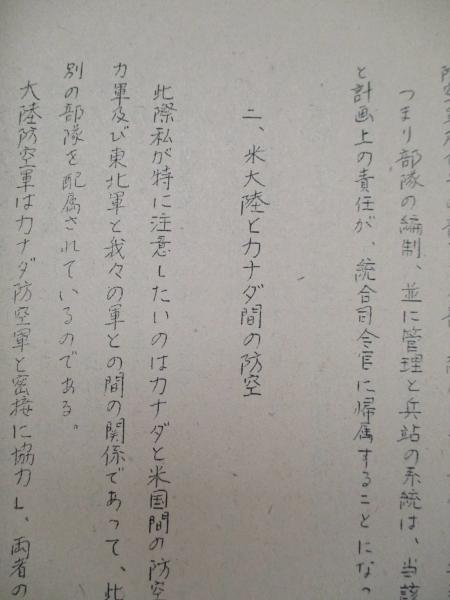 つまり部隊の編制、並に管理と兵站の系統は、当該
と計画上の責任が、統合司令官に帰属することになっ
二、米大陸とカナダ間の防空
此際私が特に注意したいのはカナダと米国間の防空
カ軍及び東北軍と我々の軍との間の関係であって、此
別の部隊を配属されているのである。
大陸防空軍はカナダ防空軍と密接に協力し、両者の